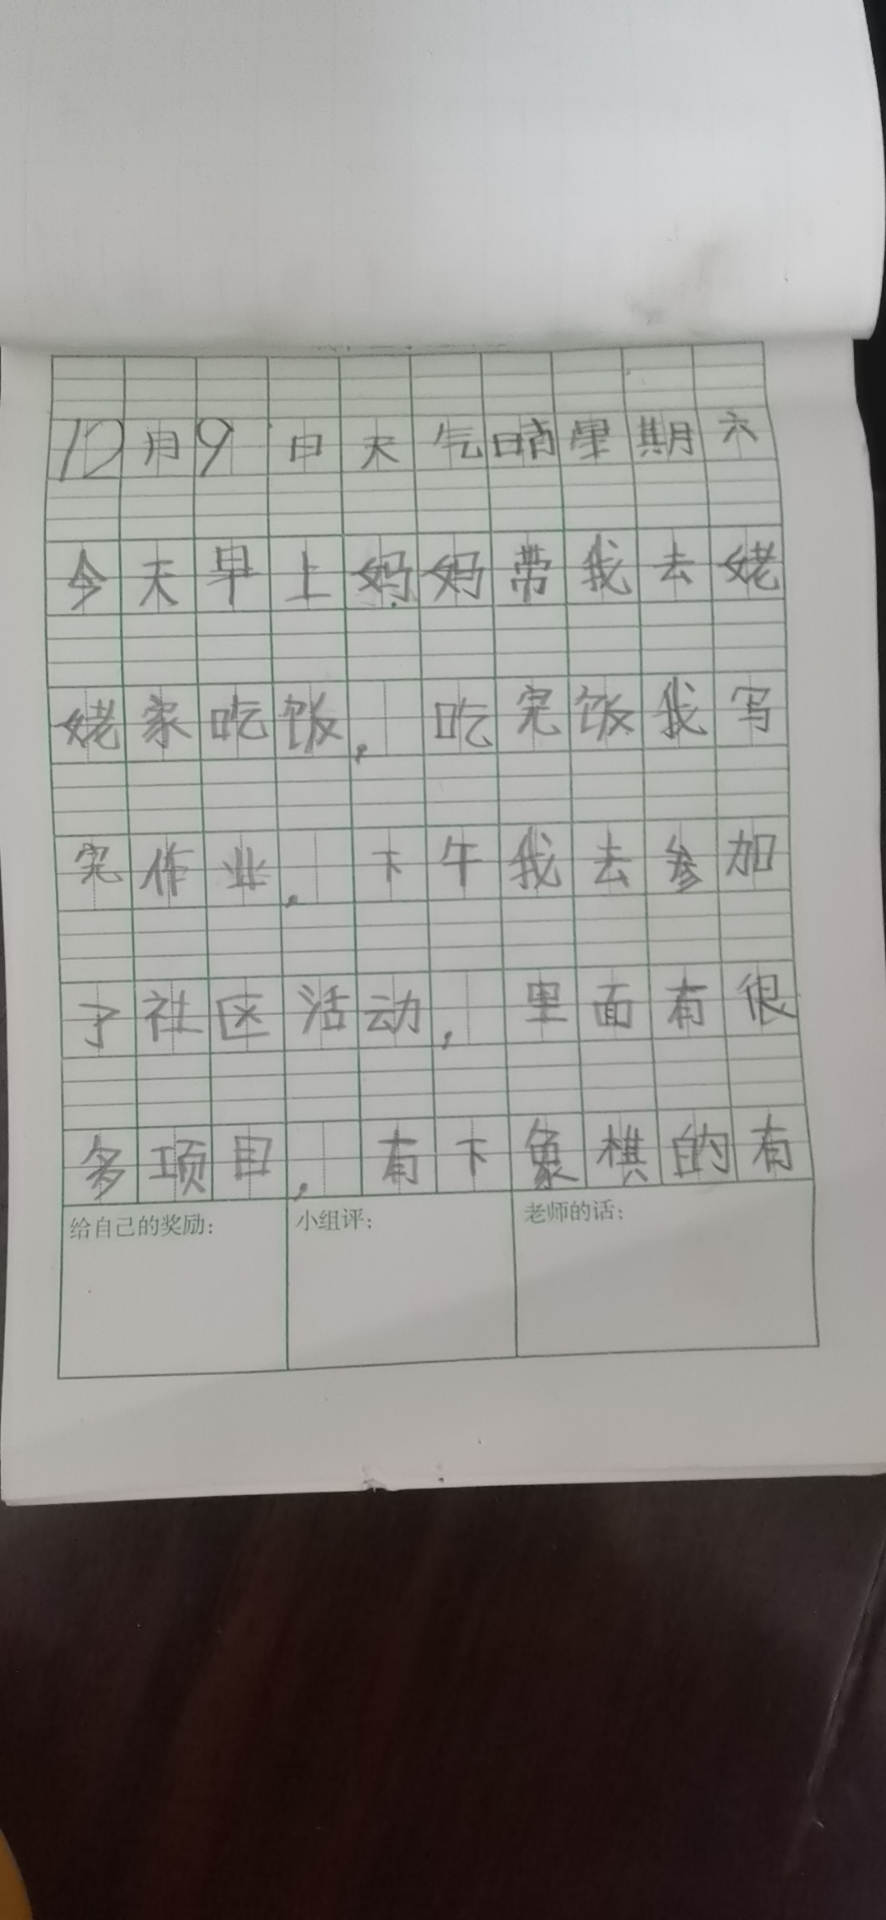 12月9日天气晴星期六
今天早上妈妈带我去姥
姥家吃饭,吃完饭我写
完作业,下午我去参加
了社区活动,里面有很
多项目,有下象棋的有
给自己的奖励:
小组评:
老师的话: